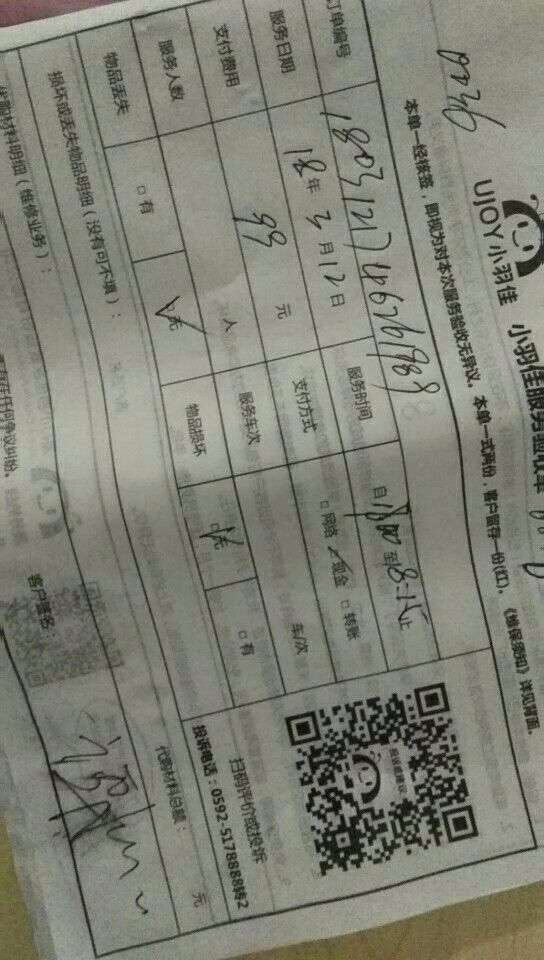 UJOY小羽佳 小羽佳服务验收单
本单一经签签，即视为对本次服务验收无异议。本单一式两份，客户留存一份(红)。《维保须知》详见背面。
订单编号
服务日期 18年3月12日 服务时间 自 至 8:15止
支付费用 98元 支付方式 □网络 ✓现金 □转账
服务人数 人 服务车次 车/次
物品丢失 □有 ✓无 物品损坏 ✓无 □有
扫码评价或投诉
投诉电话：0592-5178888转2
损坏或丢失物品明细（没有可不填）：
代购材料明细（维修业务）： 代购材料总额： 元
任何争议纠纷。
客户签名：